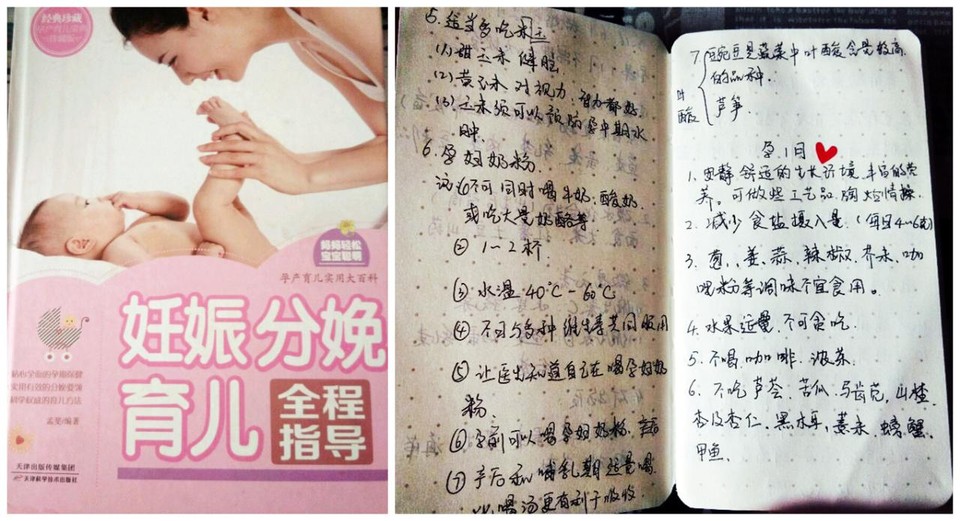 经典珍藏
孕产育儿宝典
珍藏版
妈妈轻松
宝宝聪明
孕产育儿实用大百科
妊娠分娩
育儿
全程
指导
贴心学面的孕期保健
实用有效的分娩要领
科学权威的育儿方法
孟斐/编著
天津出版传媒集团
天津科学技术出版社
5.适当多吃玉米
(1)甜玉米 健脑
(2)黄玉米 对视力、智力都好
(3)玉米须可以预防孕中期水
肿.
6.孕妇奶粉.
①不可同时喝牛奶、酸奶、
或吃大量奶酪等
② 1~2杯
③ 水温 40℃-60℃
④ 不可与多种维生素共同服用
⑤ 让医生知道自己在喝孕妇奶
粉.
⑥ 孕前可以喝孕妇奶粉,
⑦ 产后和哺乳期适量喝
喝汤更有利于吸收
7 豌豆是蔬菜中叶酸含量较高
的品种.
叶酸
芦笋.
孕1月
1.安静舒适的生长环境.丰富的营
养。可做些工艺品.陶冶情操.
2.减少食盐摄入量.(每日4~6克)
3. 葱、姜、蒜、辣椒、芥末、咖
喱粉等调味不宜食用。
4.水果适量,不可贪吃.
5.不喝咖啡、浓茶.
6.不吃芦荟、苦瓜、马齿苋,山楂
杏及杏仁、黑木耳,薏米、螃蟹、
甲鱼.